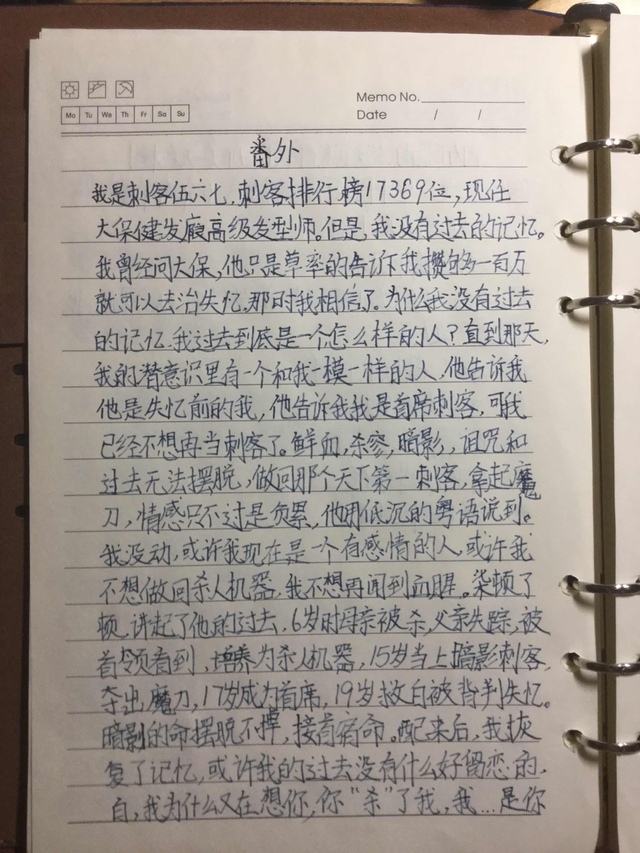 Memo No.
Mo Tu We Th Fr Sa Su
Date / /
番外
我是刺客伍六七,刺客排行榜17369位,现任
大保健发廊高级发型师。但是,我没有过去的记忆。
我曾经问大保,他只是草率的告诉我攒够一百万
就可以去治失忆,那时我相信了。为什么我没有过去
的记忆.我过去到底是一个怎么样的人?直到那天,
我的潜意识里有一个和我一模一样的人,他告诉我
他是失忆前的我,他告诉我我是首席刺客,可我
已经不想再当刺客了。鲜血,杀戮,暗影,诅咒和
过去无法摆脱,做回那个天下第一刺客,拿起魔
刀,情感只不过是负累,他用低沉的粤语说到。
我没动,或许我现在是一个有感情的人,或许我
不想做回杀人机器,我不想再闻到血腥。柒顿了
顿,讲起了他的过去,6岁时母亲被杀,父亲失踪,被
首领看到,培养为杀人机器,15岁当上暗影刺客,
夺出魔刀,17岁成为首席,19岁救白被背判失忆。
暗影的命摆脱不掉,接首宿命。醒来后,我恢
复了记忆,或许我的过去没有什么好留恋的,
白,我为什么又在想你,你"杀"了我,我...是你